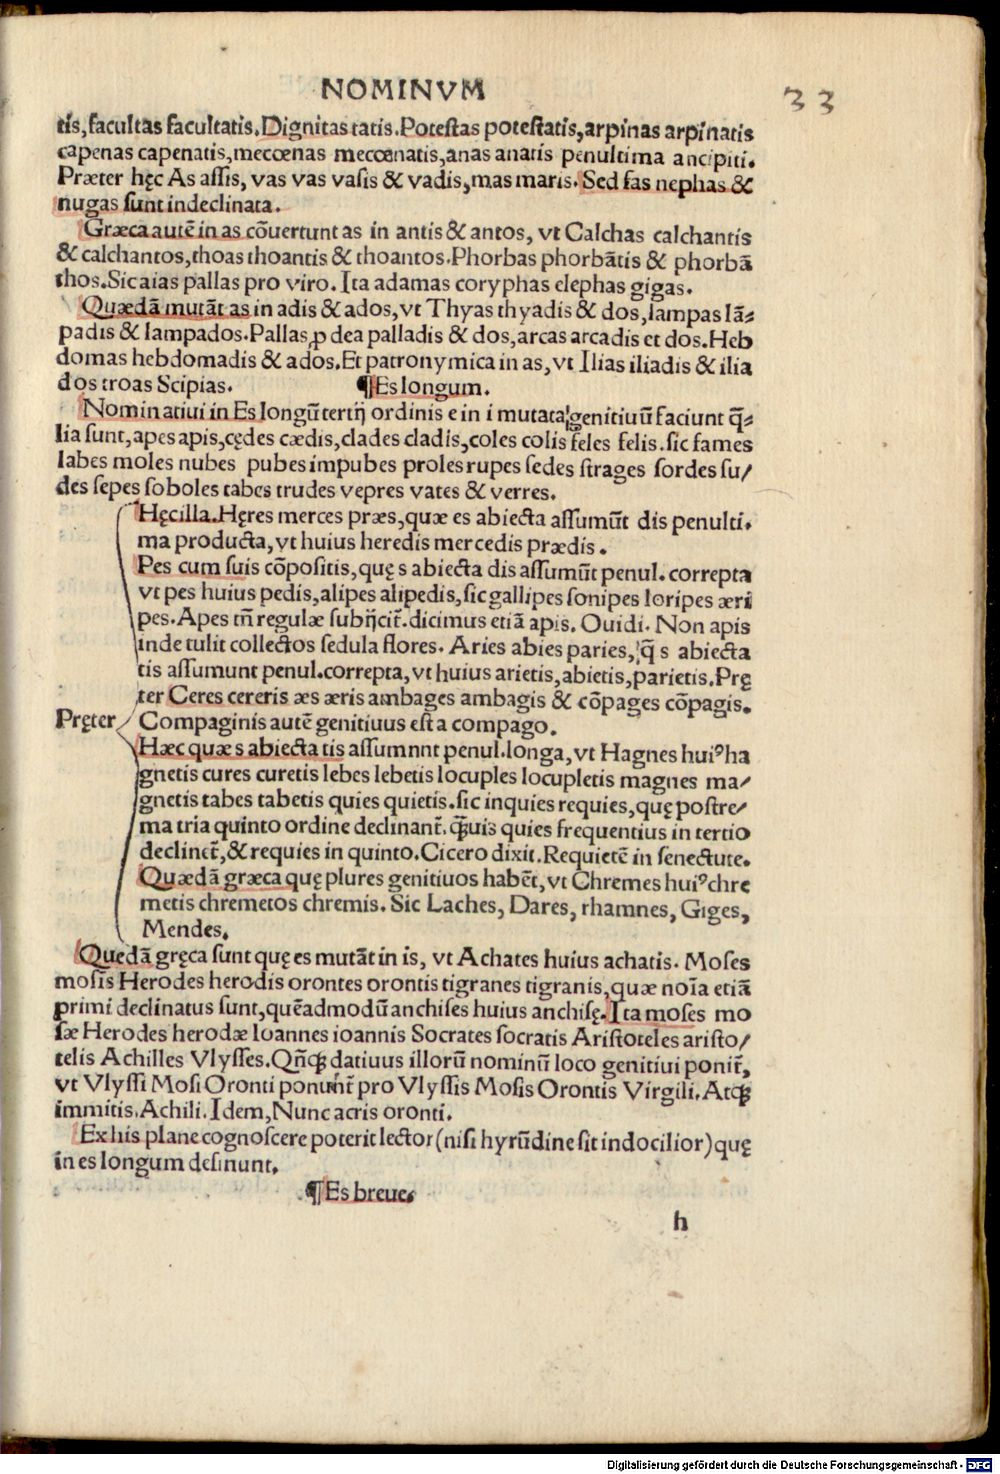 NOMINVM
33
tis,facultas facultatis.Dignitas tatis.Potestas potestatis,arpinas arpinatis
capenas capenatis,mecœnas mecœnatis,anas anatis penultima ancipiti.
Præter hęc As assis, vas vas vasis & vadis,mas maris. Sed fas nephas &
nugas sunt indeclinata.
Græca autē in as cōuertunt as in antis & antos, vt Calchas calchantis
& calchantos,thoas thoantis & thoantos.Phorbas phorbātis & phorbā
thos.Sic aias pallas pro viro. Ita adamas coryphas elephas gigas.
Quædā mutāt as in adis & ados,vt Thyas thyadis & dos,lampas lā=
padis & lampados.Pallas,ꝓ dea palladis & dos,arcas arcadis et dos.Heb
domas hebdomadis & ados.Et patronymica in as,vt Ilias iliadis & ilia
dos troas Scipias. ¶Es longum.
Nominatiui in Es longū tertij ordinis e in i mutata genitiuū faciunt q̄=
lia sunt,apes apis,cędes cædis,clades cladis,coles colis feles felis.sic fames
labes moles nubes pubes impubes proles rupes sedes strages sordes su/
des sepes soboles tabes trudes vepres vates & verres.
Hęc illa.Hęres merces præs,quæ es abiecta assumūt dis penulti.
ma producta,vt huius heredis mercedis prædis.
Pes cum suis cōpositis,quę s abiecta dis assumūt penul.correpta
vt pes huius pedis,alipes alipedis,sic gallipes sonipes loripes æri
pes.Apes tn̄ regulæ subijcit̄.dicimus etiā apis. Ouidi. Non apis
inde tulit collectos sedula flores. Aries abies paries, q̄ s abiecta
tis assumunt penul.correpta,vt huius arietis,abietis,parietis.Prę
ter Ceres cereris æs æris ambages ambagis & cōpages cōpagis.
Pręter Compaginis autē genitiuus est a compago.
Hæc quæ s abiecta tis assumnnt penul.longa,vt Hagnes huiꝰ ha
gnetis cures curetis lebes lebetis locuples locupletis magnes ma/
gnetis tabes tabetis quies quietis.sic inquies requies,quę postre/
ma tria quinto ordine declinant̄. ꝙ̄uis quies frequentius in tertio
declinet̄,& requies in quinto.Cicero dixit.Requietē in senectute.
Quædā græca quę plures genitiuos habēt,vt Chremes huiꝰ chre
metis chremetos chremis. Sic Laches, Dares, rhamnes, Giges,
Mendes.
Quedā gręca sunt quę es mutāt in is, vt Achates huius achatis. Moses
mosis Herodes herodis orontes orontis tigranes tigranis,quæ noīa etiā
primi declinatus sunt,quēadmodū anchises huius anchisę.Ita moses mo
sæ Herodes herodæ Ioannes ioannis Socrates socratis Aristoteles aristo/
telis Achilles Vlysses.Qn̄qꝫ datiuus illorū nominū loco genitiui ponit̄,
vt Vlyssi Mosi Oronti ponunt̄ pro Vlyssis Mosis Orontis Virgili.Atqꝫ
immitis.Achili.Idem,Nunc acris oronti.
Ex his plane cognoscere poterit lector(nisi hyrūdine sit indocilior)quę
in es longum desinunt.
¶Es breue.
h
Digitalisierung gefördert durch die Deutsche Forschungsgemeinschaft - DFG